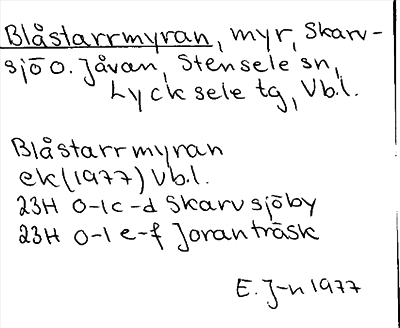 Blåstarrmyran, myr, Skarv-
sjö o. Jåvan, Stensele sn,
Lycksele tg, Vb.l.
Blåstarrmyran
ek (1977) Vb.l.
23H 0-1c-d Skarvsjöby
23H 0-1 e-f Joranträsk
E. J-n 1977